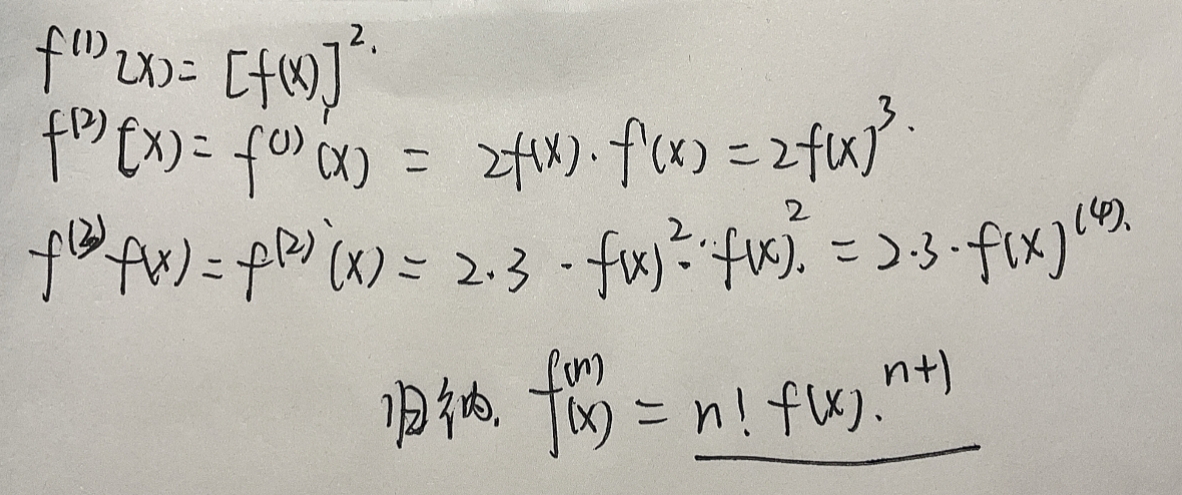 f⁽¹⁾(x) = [f(x)]².
f⁽²⁾(x) = f⁽¹⁾'(x) = 2f(x)·f'(x) = 2f(x)³.
f⁽³⁾f(x) = f⁽²⁾'(x) = 2·3·f(x)²·f(x)². = 2·3·f(x)⁽⁴⁾.
归纳. f⁽ⁿ⁾(x) = n! f(x).ⁿ⁺¹